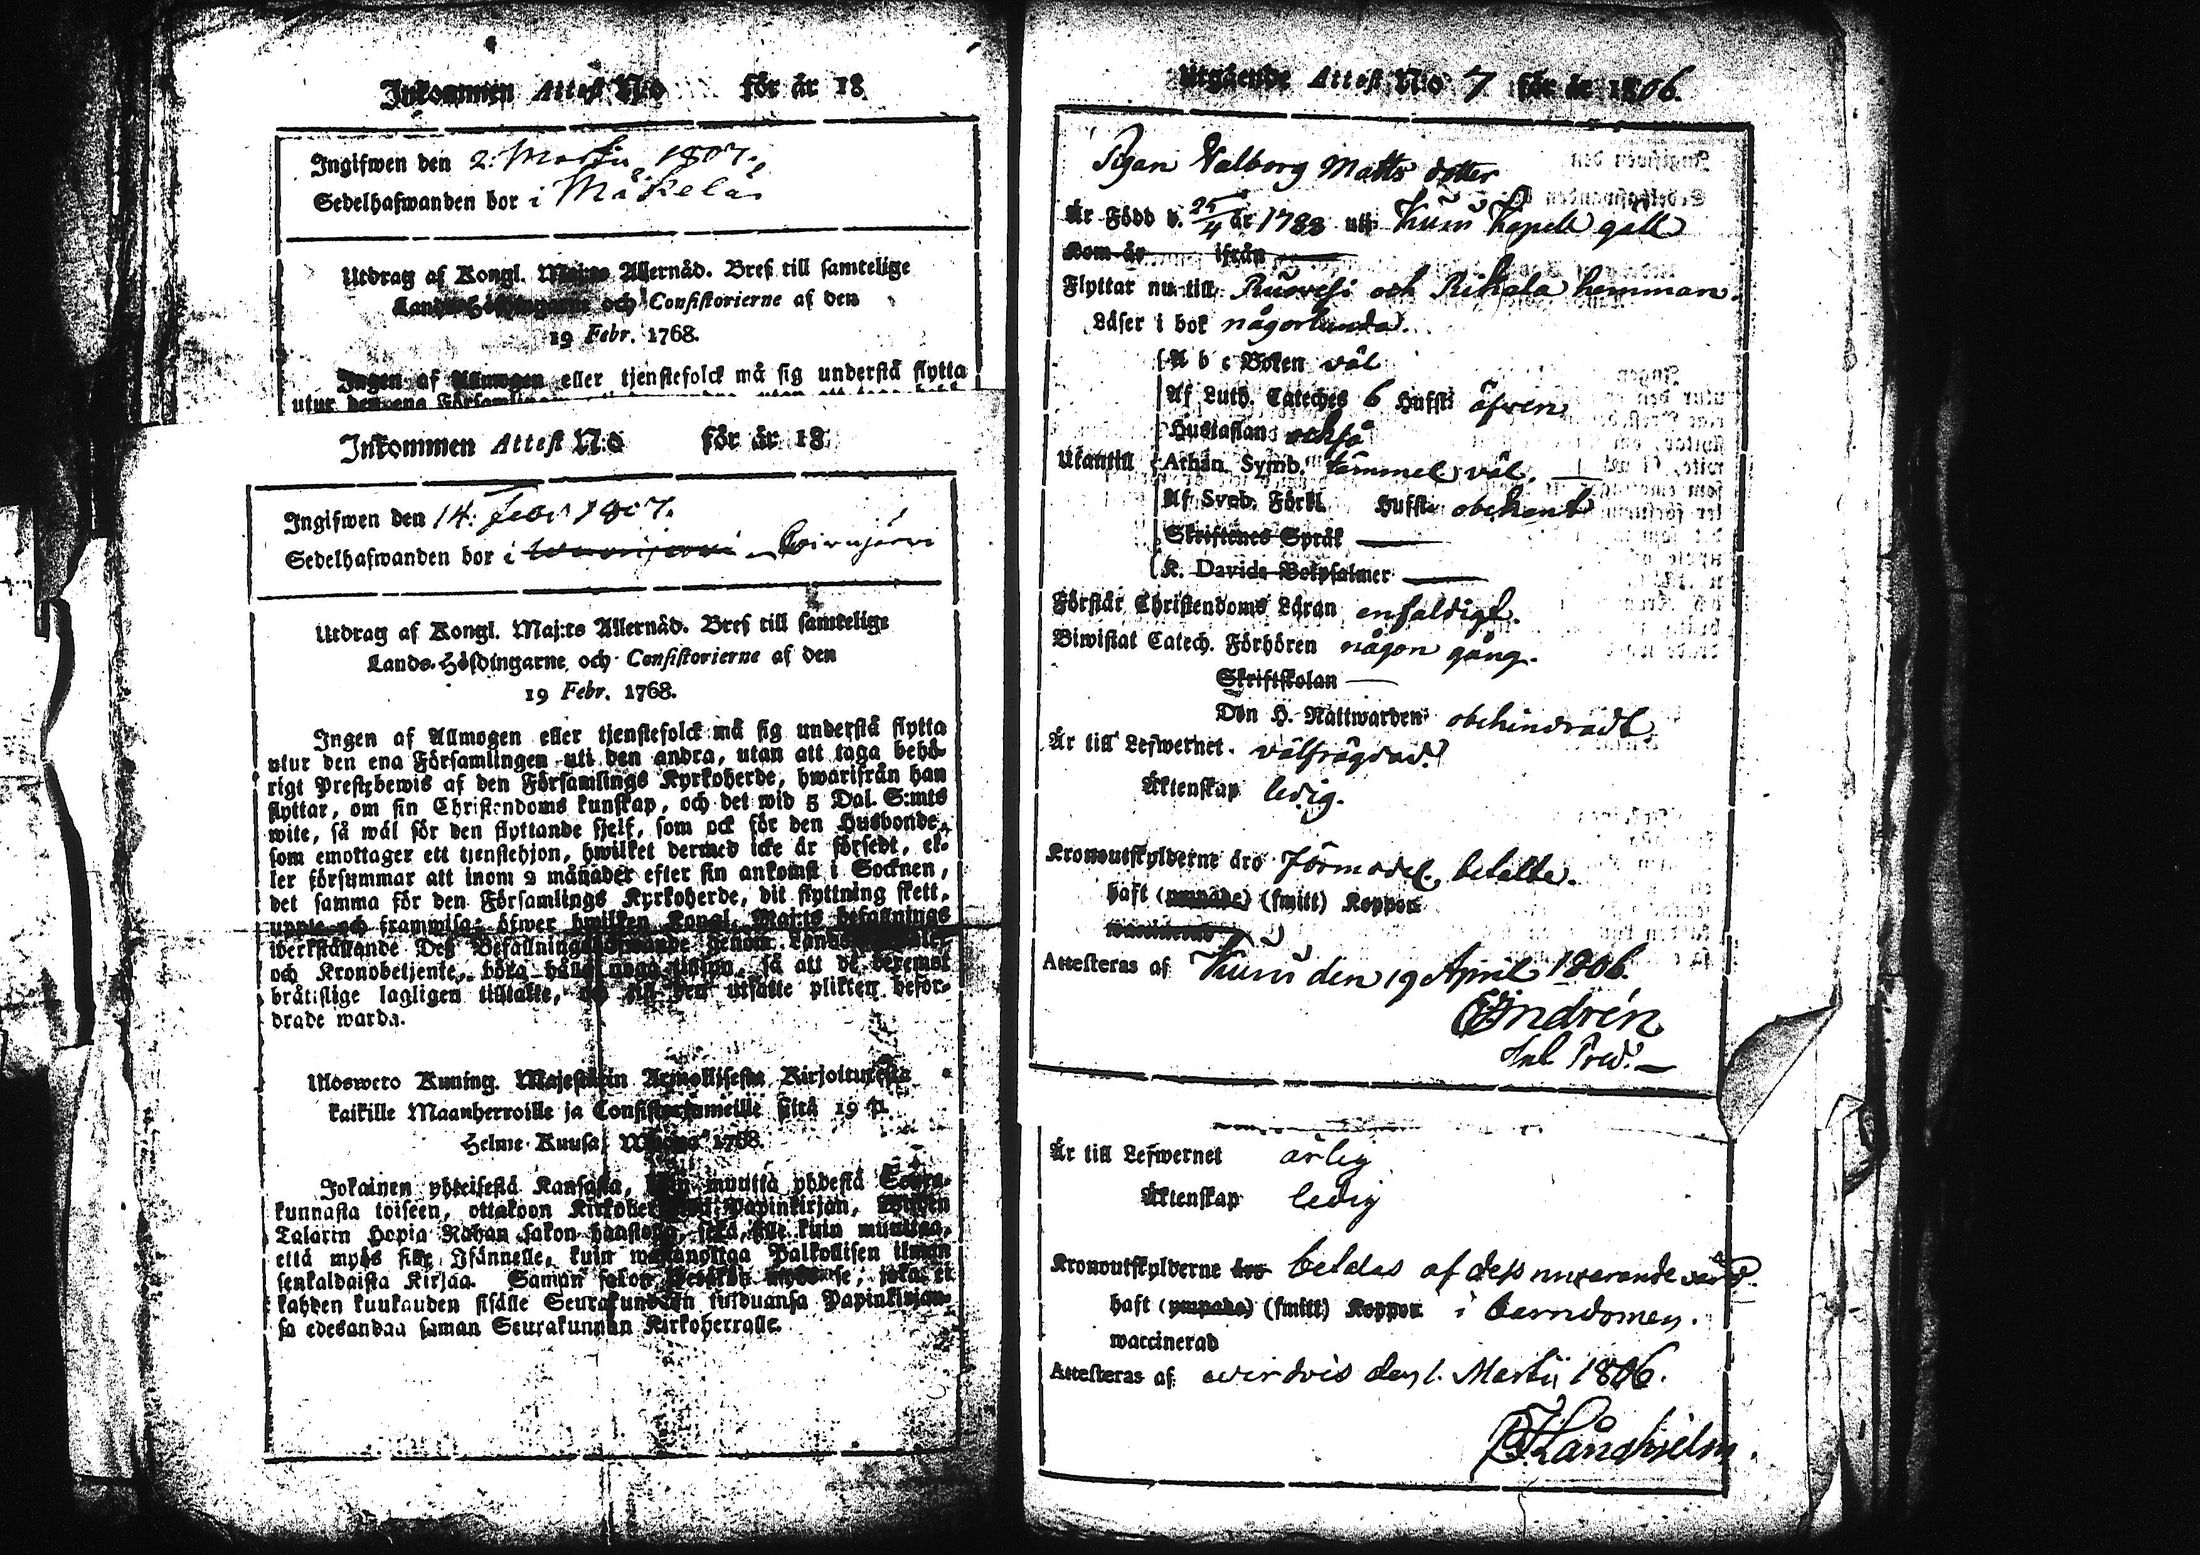 Inkommen Attest N:o för år 18
Ingifwen den 2: Martii 1807.
Sedelhafwanden bor i Mäkelä
Utdrag af Kongl. Maj:ts Allernåd. Bref till samtelige
Lands-Höfdingarne och Consistorierne af den
19 Febr. 1768.
Ingen af Allmogen eller tjenstefolck må sig understå flytta
utur den ena Församlingen
Inkommen Attest N:o för år 18
Ingifwen den 14. Febr 1807.
Sedelhafwanden bor i
Utdrag af Kongl. Maj:ts Allernåd. Bref till samtelige
Lands-Höfdingarne och Consistorierne af den
19 Febr. 1768.
Ingen af Allmogen eller tjenstefolck må sig understå flytta
utur den ena Församlingen uti den andra, utan att taga behö-
rigt Prestebewis af den Församlings Kyrkoherde, hwarifrån han
flyttar, om sin Christendoms kunskap, och det wid 5 Dal. S:mts
wite, så wäl för den flyttande sjelf, som ock för den Husbonde,
som emottager ett tjenstehjon, hwilket dermed icke är försedt, el-
ler försummar att inom 2 månader efter sin ankomst i Socknen,
det samma för den Församlings Kyrkoherde, dit flyttning skett,
uppte och framwisa; öfwer hwilken Kongl. Maj:ts befallnings
werkställande Deß Befallningshafwande genom Lands
och Kronobetjente, böra hålla noga tillsyn, så att de deremot
bråtslige lagligen tilltalte, och till den utsatte plikten befor-
drade warda.
Ulosweto Kuning. Majestetin Armollisesta Kirjoituxesta
kaikille Maanherroille ja Consistoriumeille siitä 19 p.
Helme-Kuusa, Wuonna 1768.
Jokainen yhteisestä Kansasta, kuin muutta yhdestä Seura-
kunnasta toiseen, ottakoon Kirkoherralta Papinkirjan, Wijden
Talarin Hopia Rahan sakon haastolla, sekä sille kuin muuttaa,
että myös sille Isännelle, kuin wastanottaa Palkollisen ilman
senkaldaista Kirjaa. Saman sakon myös se, joka ei
kahden kuukauden sisälle Seurakundaan tulduansa Papinkirjan-
sa edesandaa saman Seurakunnan Kirkoherralle.
Utgående Attest N:o 7 för år 1806.
Pigan Valborg Matts dotter
Är Född d. 25/4 år 1788 uti Kuru Kapell gäll
Kom år ifrån
Flyttar nu till Ruovesi och Rikala hemman.
Läser i bok någorlunda.
Utantill
A b c Boken väl
Af Luth. Cateches 6 Hufst: äfven
Hustaflan också
Athan. Symb. tämmel. väl.
Af Sveb. Förkl. Hufst: obekant
Skriftenes Språk
K. Davids Botpsalmer
Förstår Christendoms Läran enfaldigt.
Biwistat Catech. Förhören någon gång.
Skriftskolan
Den H. Nattwarden obehindradt
Är till Lefwernet välfrägdad.
Äktenskap ledig.
Kronoutskylderne äro Förmodel. betalte.
haft (ympade) (smitt) Koppor
waccinerad
Attesteras af Kuru den 19 April 1806.
Indrén
Är till Lefwernet ärlig
Äktenskap ledig
Kronoutskylderne äro betalas af dess nuvarande värd.
haft (ympade) (smitt) Koppor i barndomen.
waccinerad
Attesteras af Wirdois den 1. Martii 1806.
Långhielm.